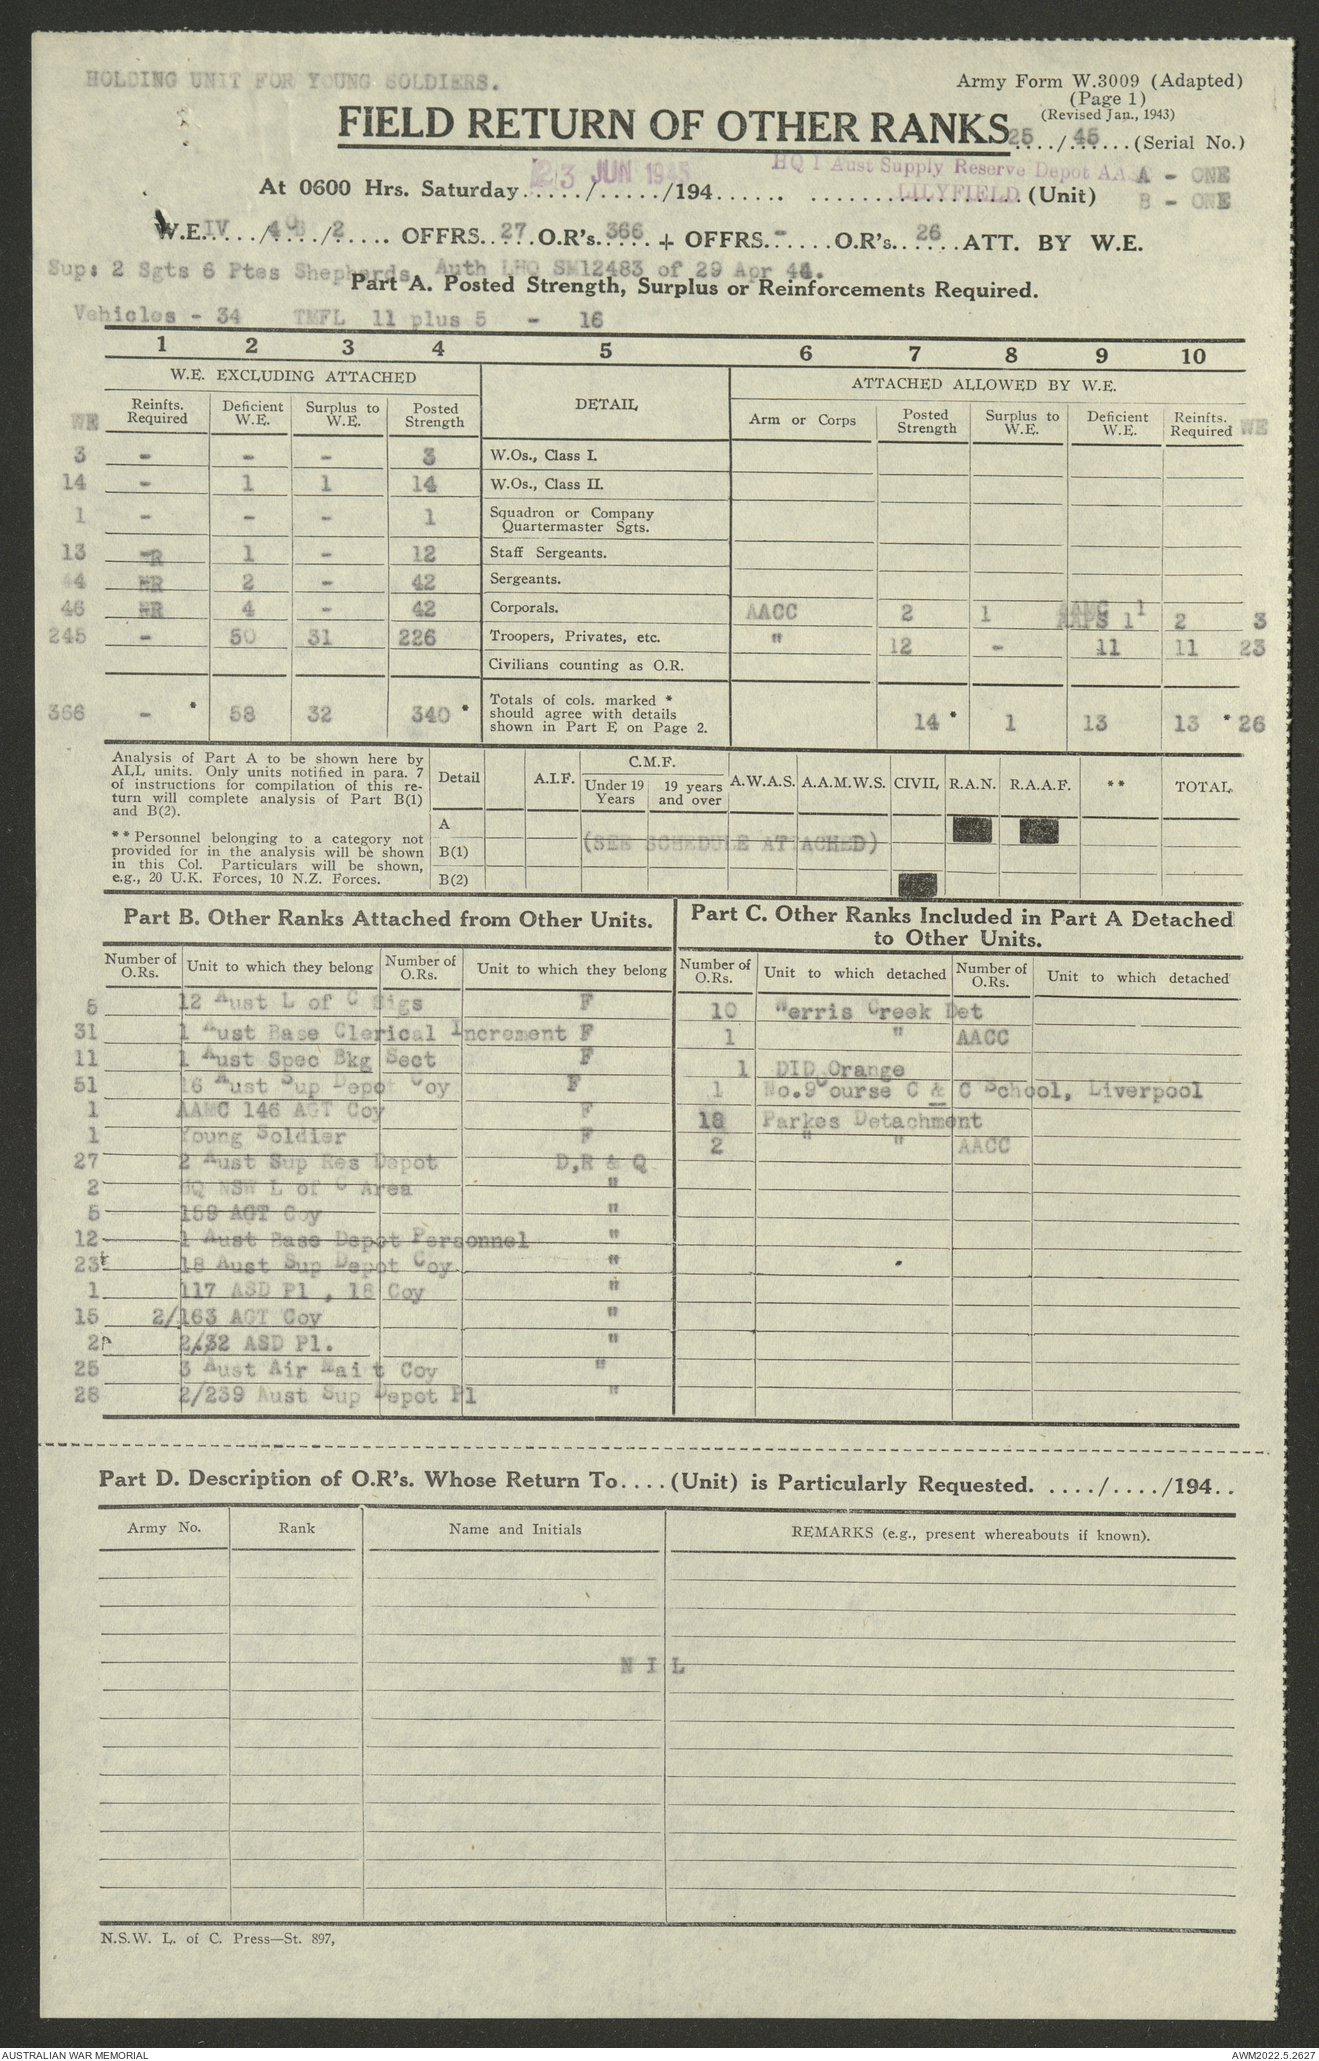 HOLDING UNIT FOR YOUNG SOLDIERS.
Army Form W.3009 (Adapted)
(Page 1)
(Revised Jan., 1943)
FIELD RETURN OF OTHER RANKS 25..../.45.....(Serial No.)
At 0600 Hrs. Saturday 23 JUN 1945 ...../...../194...... HQ 1 Aust Supply Reserve Depot AASC A - ONE
LILYFIELD (Unit) B - ONE
W.E. IV ..../4...../2..... OFFRS. 27 O.R's. 366 + OFFRS. - O.R's. 26 ATT. BY W.E.
Sup: 2 Sgts 6 Ptes Shephards. Auth LHQ SM12483 of 29 Apr 44.
Part A. Posted Strength, Surplus or Reinforcements Required.
Vehicles - 34 TMFL 11 plus 5 - 16
1 2 3 4 5 6 7 8 9 10
W.E. EXCLUDING ATTACHED DETAIL ATTACHED ALLOWED BY W.E.
WE Reinfts. Required Deficient W.E. Surplus to W.E. Posted Strength Arm or Corps Posted Strength Surplus to W.E. Deficient W.E. Reinfts. Required WE
3 - - - 3 W.Os., Class I.
14 - 1 1 14 W.Os., Class II.
1 - - - 1 Squadron or Company Quartermaster Sgts.
13 -R 1 - 12 Staff Sergeants.
44 2 - 42 Sergeants.
46 4 - 42 Corporals. AACC 2 1 AAMC 1 AAPS 1 2 3
245 - 50 31 226 Troopers, Privates, etc. " 12 - 11 11 23
Civilians counting as O.R.
366 - * 58 32 340 * Totals of cols. marked * should agree with details shown in Part E on Page 2. 14 * 1 13 13 * 26
Analysis of Part A to be shown here by
ALL units. Only units notified in para. 7
of instructions for compilation of this re-
turn will complete analysis of Part B(1)
and B(2).
** Personnel belonging to a category not
provided for in the analysis will be shown
in this Col. Particulars will be shown,
e.g., 20 U.K. Forces, 10 N.Z. Forces.
Detail A.I.F. C.M.F. Under 19 Years 19 years and over A.W.A.S. A.A.M.W.S. CIVIL R.A.N. R.A.A.F. ** TOTAL
A
B(1) (SEE SCHEDULE ATTACHED)
B(2)
Part B. Other Ranks Attached from Other Units.
Number of O.Rs. Unit to which they belong Number of O.Rs. Unit to which they belong
5 12 Aust L of C Sigs F
31 1 Aust Base Clerical Increment F
11 1 Aust Spec Bkg Sect F
51 16 Aust Sup Depot Coy F
1 AAMC 146 AGT Coy F
1 Young Soldier F
27 2 Aust Sup Res Depot D,R & Q
2 HQ NSW L of C Area "
5 158 AGT Coy "
12 1 Aust Base Depot Personnel "
23 18 Aust Sup Depot Coy. "
1 117 ASD Pl , 18 Coy "
15 2/163 AGT Coy "
2 2/32 ASD Pl. "
25 3 Aust Air Mai t Coy "
28 2/239 Aust Sup Depot Pl "
Part C. Other Ranks Included in Part A Detached
to Other Units.
Number of O.Rs. Unit to which detached Number of O.Rs. Unit to which detached
10 Werris Creek Det
1 " AACC
1 DID Orange
1 No.9 Course C & C School, Liverpool
18 Parkes Detachment
2 " " AACC
Part D. Description of O.R's. Whose Return To....(Unit) is Particularly Requested. ..../..../194..
Army No. Rank Name and Initials REMARKS (e.g., present whereabouts if known).
N I L
N.S.W. L. of C. Press—St. 897,
AUSTRALIAN WAR MEMORIAL
AWM2022.5.2627